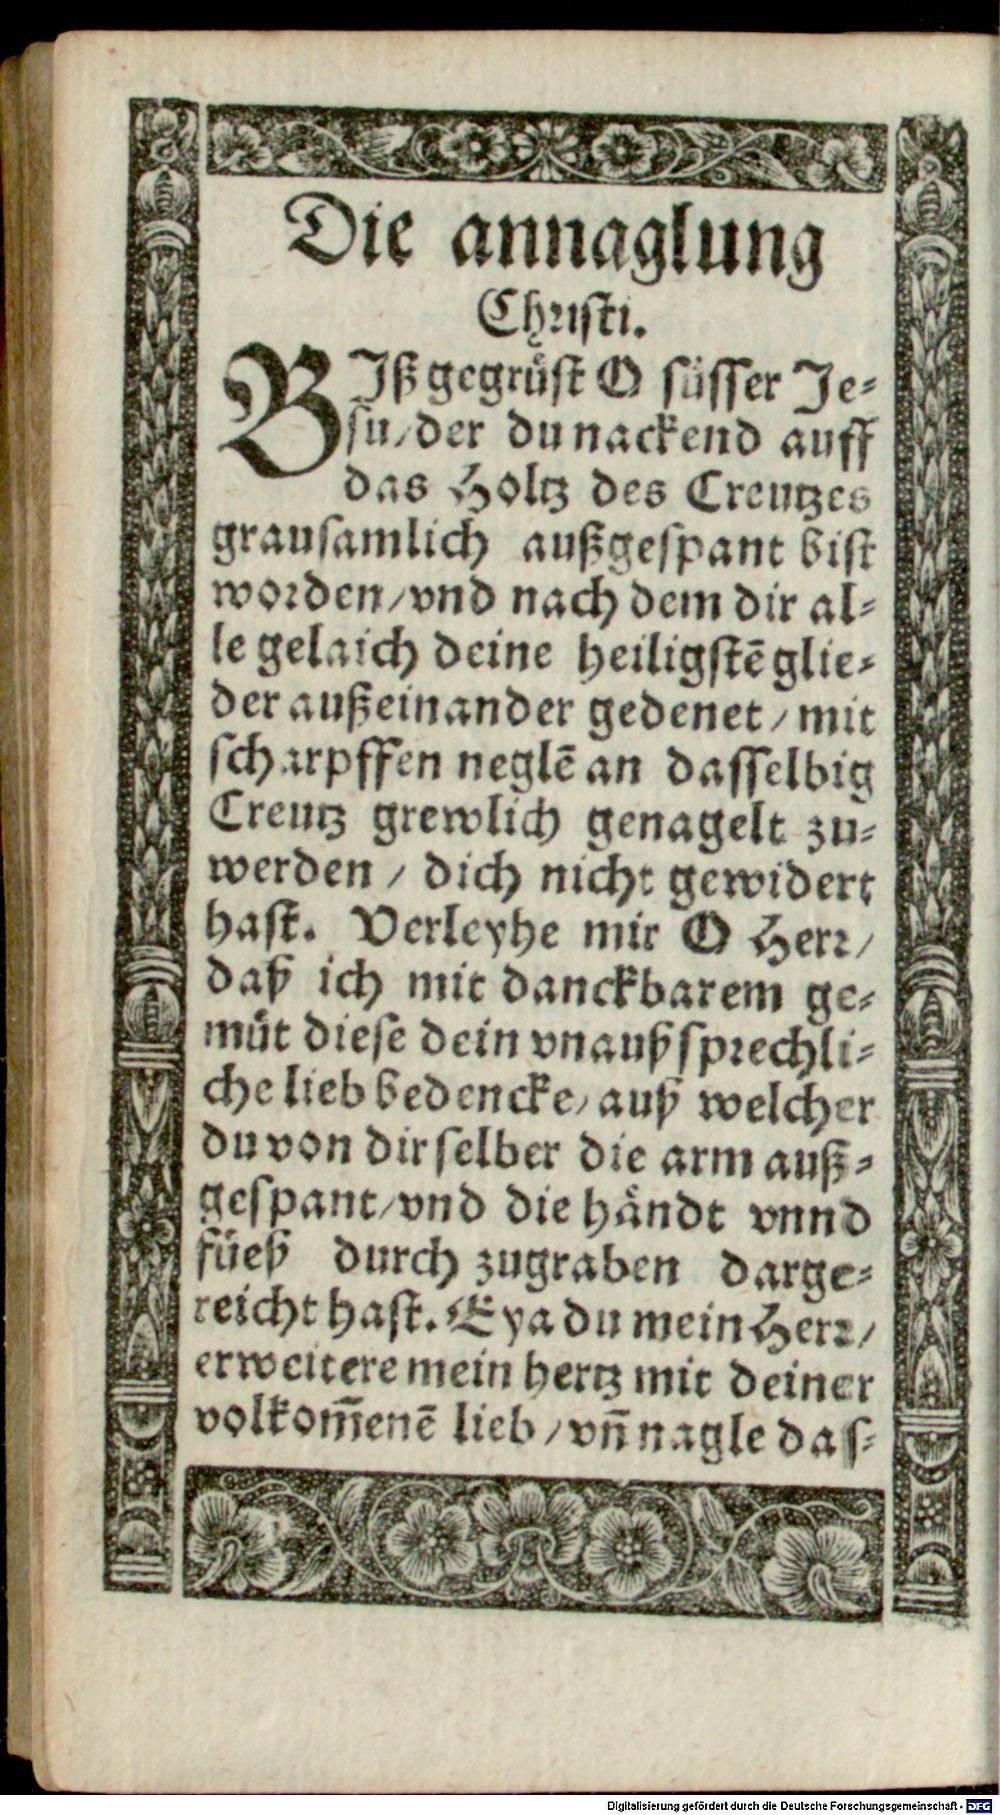 Die annaglung
Christi.
BJß gegrüst O süsser Je⸗
su/der du nackend auff
das Holtz des Creutzes
grausamlich außgespant bist
worden/vnd nach dem dir al⸗
le gelaich deine heiligstē glie⸗
der außeinander gedenet/mit
scharpffen neglē an dasselbig
Creutz grewlich genagelt zu⸗
werden/dich nicht gewidert
hast. Verleyhe mir O Herr/
daß ich mit danckbarem ge⸗
müt diese dein vnaußsprechli⸗
che lieb bedencke/auß welcher
du von dir selber die arm auß⸗
gespant/vnd die händt vnnd
füeß durch zugraben darge⸗
reicht hast. Eya du mein Herr/
erweitere mein hertz mit deiner
volkom̄enē lieb/vn̄ nagle das⸗
Digitalisierung gefördert durch die Deutsche Forschungsgemeinschaft - DFG